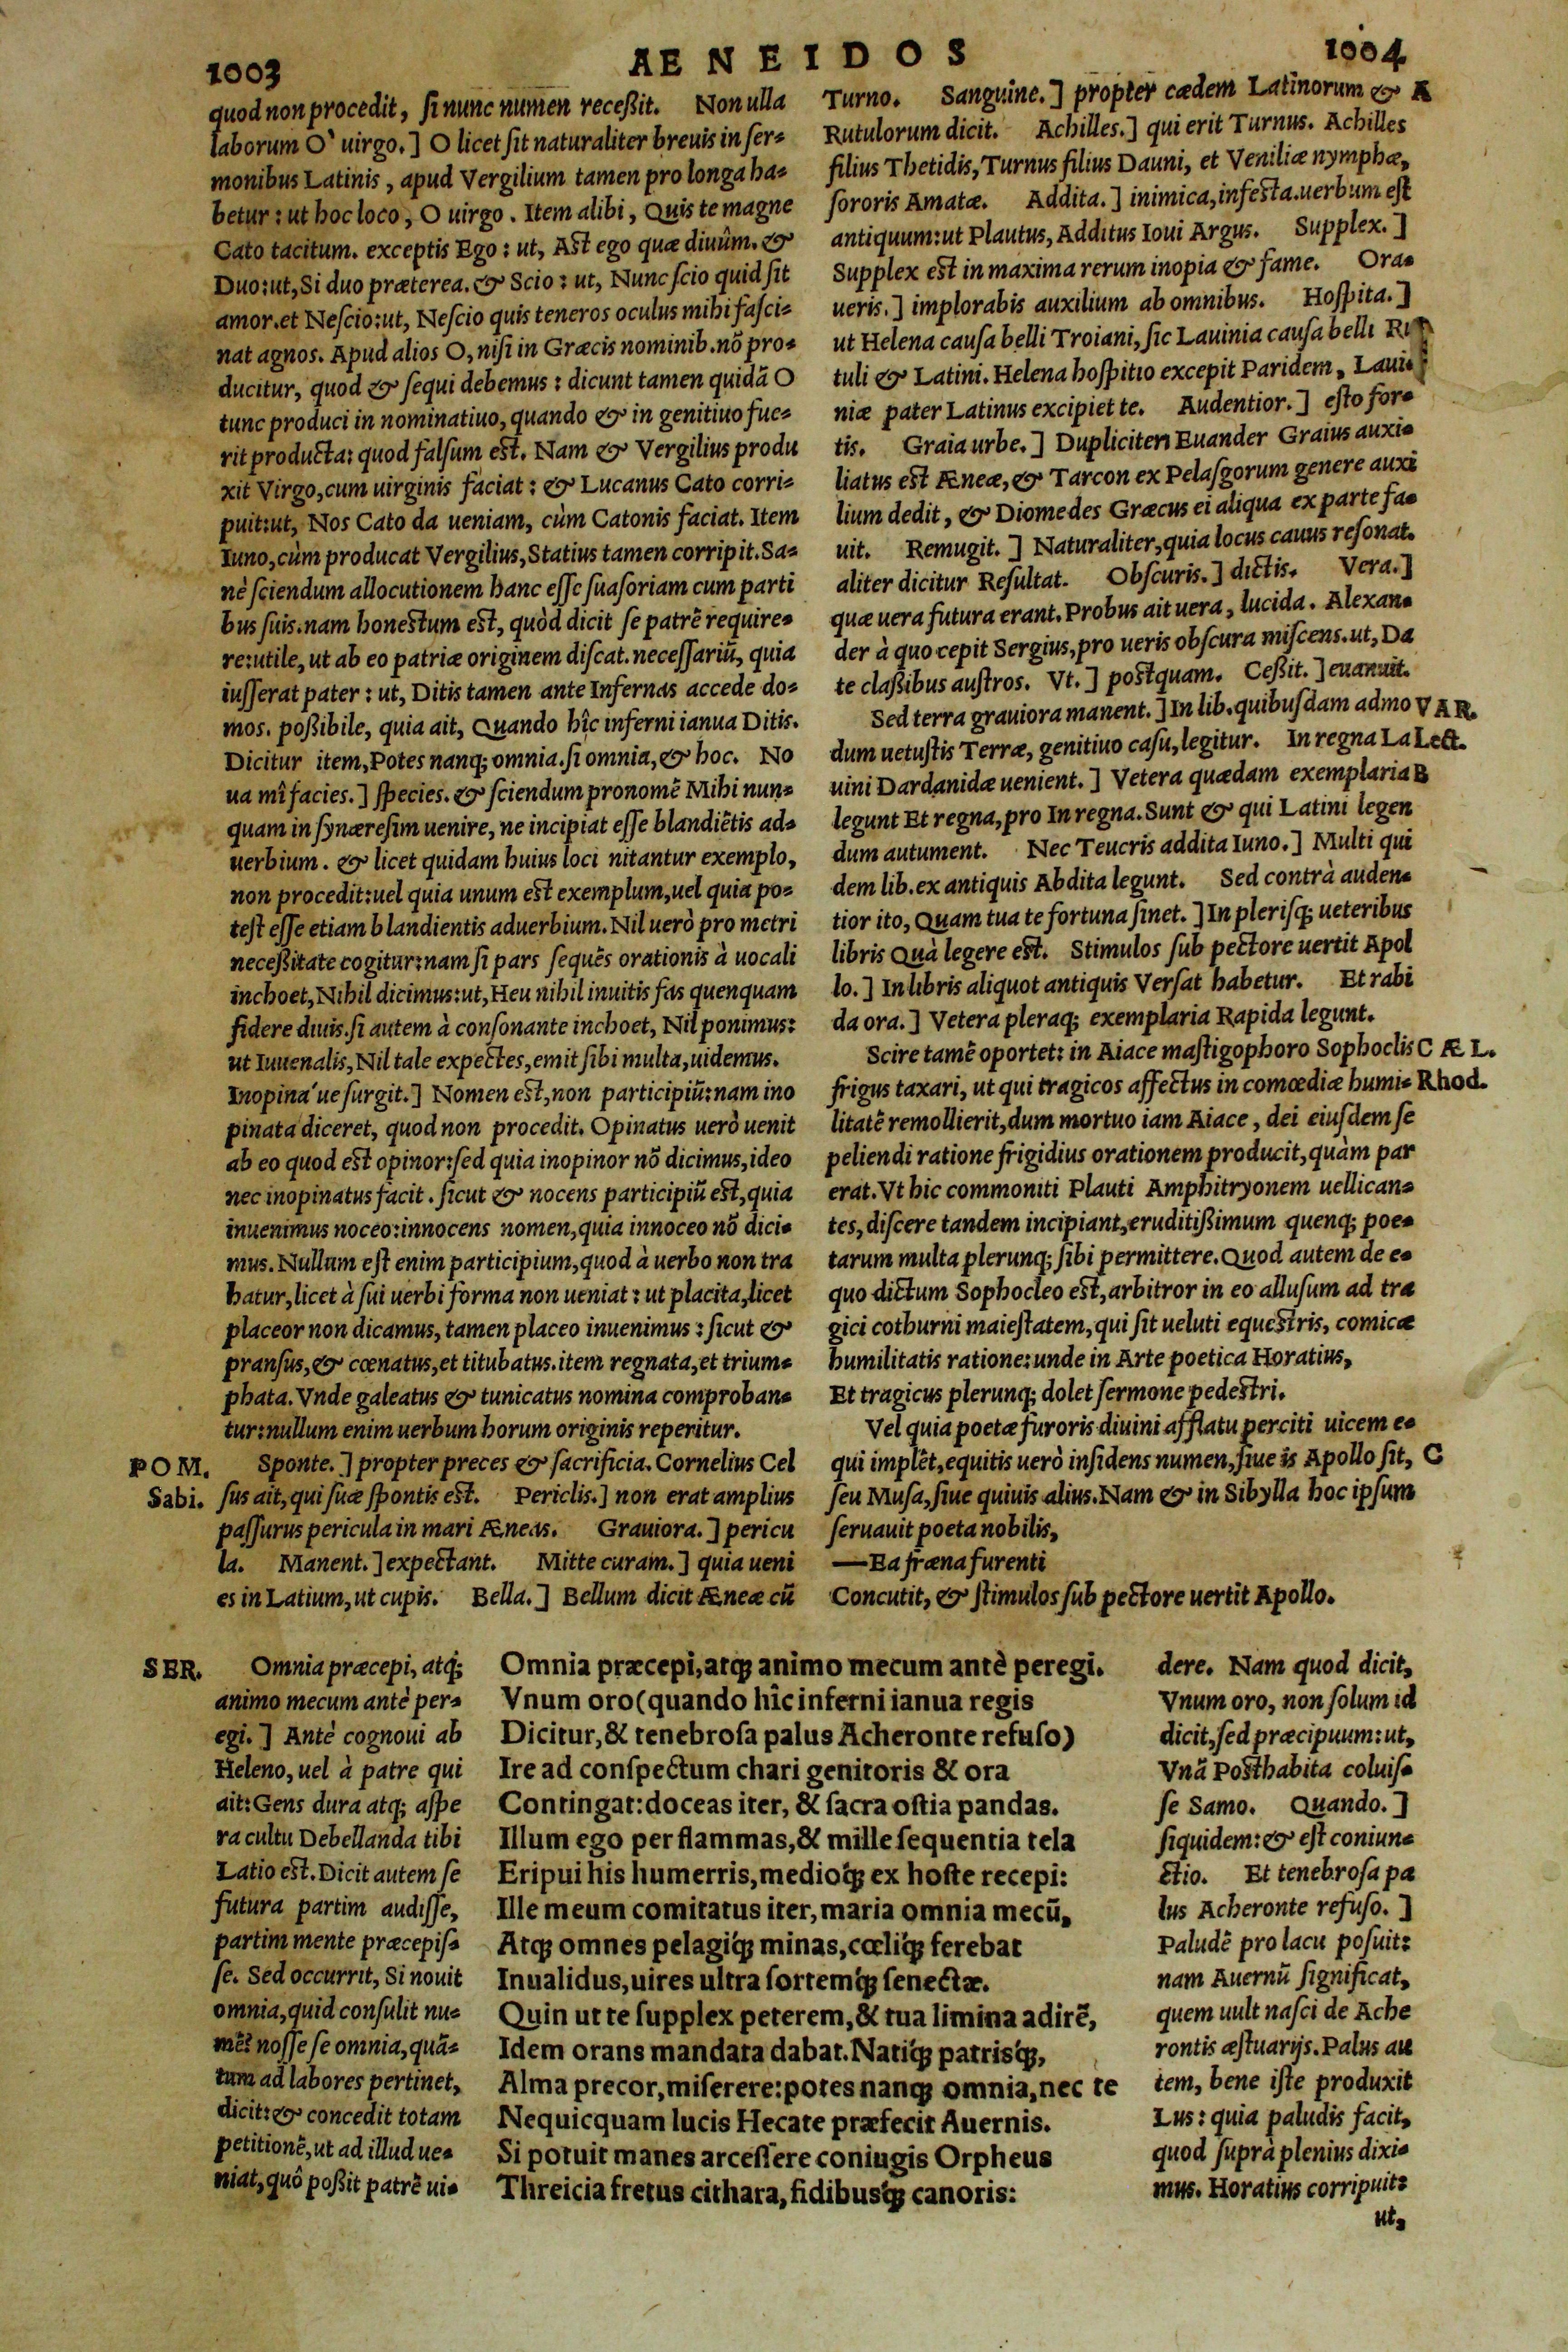 1003
AENEIDOS
1004
quod non procedit, ſi nunc numen receßit. Non ulla
laborum O` uirgo.] O licet ſit naturaliter breuis in ſer-
monibus Latinis, apud Vergilium tamen pro longa ha-
betur: ut hoc loco, O uirgo. Item alibi, Quis te magne
Cato tacitum. exceptis Ego: ut, Ast ego quæ diuûm. &
Duo: ut, Si duo præterea. & Scio: ut, Nunc ſcio quid ſit
amor. et Neſcio: ut, Neſcio quis teneros oculus mihi faſci-
nat agnos. Apud alios O, niſi in Græcis nominib. nõ pro-
ducitur, quod & ſequi debemus: dicunt tamen quidã O
tunc produci in nominatiuo, quando & in genitiuo fue-
rit producta: quod falſum est. Nam & Vergilius produ
xit Virgo, cum uirginis faciat: & Lucanus Cato corri-
puit: ut, Nos Cato da ueniam, cùm Catonis faciat. Item
Iuno, cùm producat Vergilius, Statius tamen corripit. Sa-
nè ſciendum allocutionem hanc eſſe ſuaſoriam cum parti
bus ſuis. nam honestum est, quòd dicit ſe patrẽ require-
re: utile, ut ab eo patriæ originem diſcat. neceſſariũ, quia
iuſſerat pater: ut, Ditis tamen ante Infernas accede do-
mos. poßibile, quia ait, Quando hîc inferni ianua Ditis.
Dicitur item, Potes nanq; omnia. ſi omnia, & hoc. No
ua mî facies.] ſpecies. & ſciendum pronomẽ Mihi nun-
quam in ſynæreſim uenire, ne incipiat eſſe blandiẽtis ad-
uerbium. & licet quidam huius loci nitantur exemplo,
non procedit: uel quia unum est exemplum, uel quia po-
teſt eſſe etiam blandientis aduerbium. Nil uerò pro metri
neceßitate cogitur: nam ſi pars ſequẽs orationis à uocali
inchoet, Nihil dicimus: ut, Heu nihil inuitis fas quenquam
fidere diuis. ſi autem à conſonante inchoet, Nil ponimus:
ut Iuuenalis, Nil tale expectes, emit ſibi multa, uidemus.
Inopina´ue ſurgit.] Nomen est, non participiũ: nam ino
pinata diceret, quod non procedit. Opinatus uerò uenit
ab eo quod est opinor: ſed quia inopinor nõ dicimus, ideo
nec inopinatus facit. ſicut & nocens participiũ est, quia
inuenimus noceo: innocens nomen, quia innoceo nõ dici-
mus. Nullum eſt enim participium, quod à uerbo non tra
hatur, licet à ſui uerbi forma non ueniat: ut placita, licet
placeor non dicamus, tamen placeo inuenimus: ſicut &
pranſus, & cœnatus, et titubatus. item regnata, et trium-
phata. Vnde galeatus & tunicatus nomina comproban-
tur: nullum enim uerbum horum originis reperitur.
POM. Sponte.] propter preces & ſacrificia. Cornelius Cel
Sabi. ſus ait, qui ſuæ ſpontis est. Periclis.] non erat amplius
paſſurus pericula in mari Æneas. Grauiora.] pericu
la. Manent.] expectant. Mitte curam.] quia ueni
es in Latium, ut cupis. Bella.] Bellum dicit Æneæ cũ
Turno. Sanguine.] propter cædem Latinorum & A
Rutulorum dicit. Achilles.] qui erit Turnus. Achilles
filius Thetidis, Turnus filius Dauni, et Veniliæ nymphæ,
ſororis Amatæ. Addita.] inimica, infecta. uerbum eſt
antiquum: ut Plautus, Additus Ioui Argus. Supplex.]
Supplex est in maxima rerum inopia & fame. Ora-
ueris.] implorabis auxilium ab omnibus. Hoſpita.]
ut Helena cauſa belli Troiani, ſic Lauinia cauſa belli Ru
tuli & Latini. Helena hoſpitio excepit Paridem, Laui-
niæ pater Latinus excipiet te. Audentior.] eſto for-
tis. Graia urbe.] Dupliciter: Euander Graius auxi-
liatus est Æneæ, & Tarcon ex Pelaſgorum genere auxi
lium dedit, & Diomedes Græcus ei aliqua ex parte fa-
uit. Remugit.] Naturaliter, quia locus cauus reſonat.
aliter dicitur Reſultat. Obſcuris.] dictis. Vera.]
quæ uera futura erant. Probus ait uera, lucida. Alexan-
der à quo cepit Sergius, pro ueris obſcura miſcens. ut, Da
te claßibus auſtros. Vt.] postquam. Ceßit.] euanuit.
Sed terra grauiora manent.] In lib. quibuſdam admo VAR.
dum uetuſtis Terræ, genitiuo caſu, legitur. In regna La Lect.
uini Dardanidæ uenient.] Vetera quædam exemplaria B
legunt Et regna, pro In regna. Sunt & qui Latini legen
dum autument. Nec Teucris addita Iuno.] Multi qui
dem lib. ex antiquis Abdita legunt. Sed contrà auden-
tior ito, Quam tua te fortuna ſinet.] In pleriſq; ueteribus
libris Quà legere est. Stimulos ſub pectore uertit Apol
lo.] In libris aliquot antiquis Verſat habetur. Et rabi
da ora.] Vetera pleraq; exemplaria Rapida legunt.
Scire tamẽ oportet: in Aiace maſtigophoro Sophoclis CÆL.
frigus taxari, ut qui tragicos affectus in comœdiæ humi- Rhod.
litatẽ remollierit, dum mortuo iam Aiace, dei eiuſdem ſe
peliendi ratione frigidius orationem producit, quàm par
erat. Vt hic commoniti Plauti Amphitryonem uellican-
tes, diſcere tandem incipiant, eruditißimum quenq; poe-
tarum multa plerunq; ſibi permittere. Quod autem de e-
quo dictum Sophocleo est, arbitror in eo alluſum ad tra
gici cothurni maieſtatem, qui ſit ueluti equestris, comicæ
humilitatis ratione: unde in Arte poetica Horatius,
Et tragicus plerunq; dolet ſermone pedestri.
Vel quia poetæ furoris diuini afflatu perciti uicem e-
qui implẽt, equitis uerò inſidens numen, ſiue is Apollo ſit, C
ſeu Muſa, ſiue quiuis alius. Nam & in Sibylla hoc ipſum
ſeruauit poeta nobilis,
—Ea fræna furenti
Concutit, & ſtimulos ſub pectore uertit Apollo.
SER. Omnia præcepi, atq;
animo mecum antè per-
egi.] Antè cognoui ab
Heleno, uel à patre qui
ait: Gens dura atq; aſpe
ra cultu Debellanda tibi
Latio est. Dicit autem ſe
futura partim audiſſe,
partim mente præcepiſ-
ſe. Sed occurrit, Si nouit
omnia, quid conſulit nu-
mẽ? noſſe ſe omnia, quã-
tum ad labores pertinet,
dicit: & concedit totam
petitionẽ, ut ad illud ue-
niat, quô poßit patrẽ ui-
Omnia præcepi, atq; animo mecum antè peregi.
Vnum oro (quando hîc inferni ianua regis
Dicitur, & tenebroſa palus Acheronte refuſo)
Ire ad conſpectum chari genitoris & ora
Contingat: doceas iter, & ſacra oſtia pandas.
Illum ego per flammas, & mille ſequentia tela
Eripui his humerris, medioq́; ex hoſte recepi:
Ille meum comitatus iter, maria omnia mecũ,
Atq; omnes pelagiq́; minas, cœliq́; ferebat
Inualidus, uires ultra ſortemq́; ſenectæ.
Quin ut te ſupplex peterem, & tua limina adirẽ,
Idem orans mandata dabat. Natiq́; patrisq́;,
Alma precor, miſerere: potes nanq; omnia, nec te
Nequicquam lucis Hecate præfecit Auernis.
Si potuit manes arceſſere coniugis Orpheus
Threicia fretus cithara, fidibusq́; canoris:
dere. Nam quod dicit,
Vnum oro, non ſolum id
dicit, ſed præcipuum: ut,
Vnã Posthabita coluiſ-
ſe Samo. Quando.]
ſiquidem: & eſt coniun-
ctio. Et tenebroſa pa
lus Acheronte refuſo.]
Paludẽ pro lacu poſuit:
nam Auernũ ſignificat,
quem uult naſci de Ache
rontis æſtuarijs. Palus au
tem, bene iſte produxit
Lus: quia paludis facit,
quod ſuprà plenius dixi-
mus. Horatius corripuit:
ut,